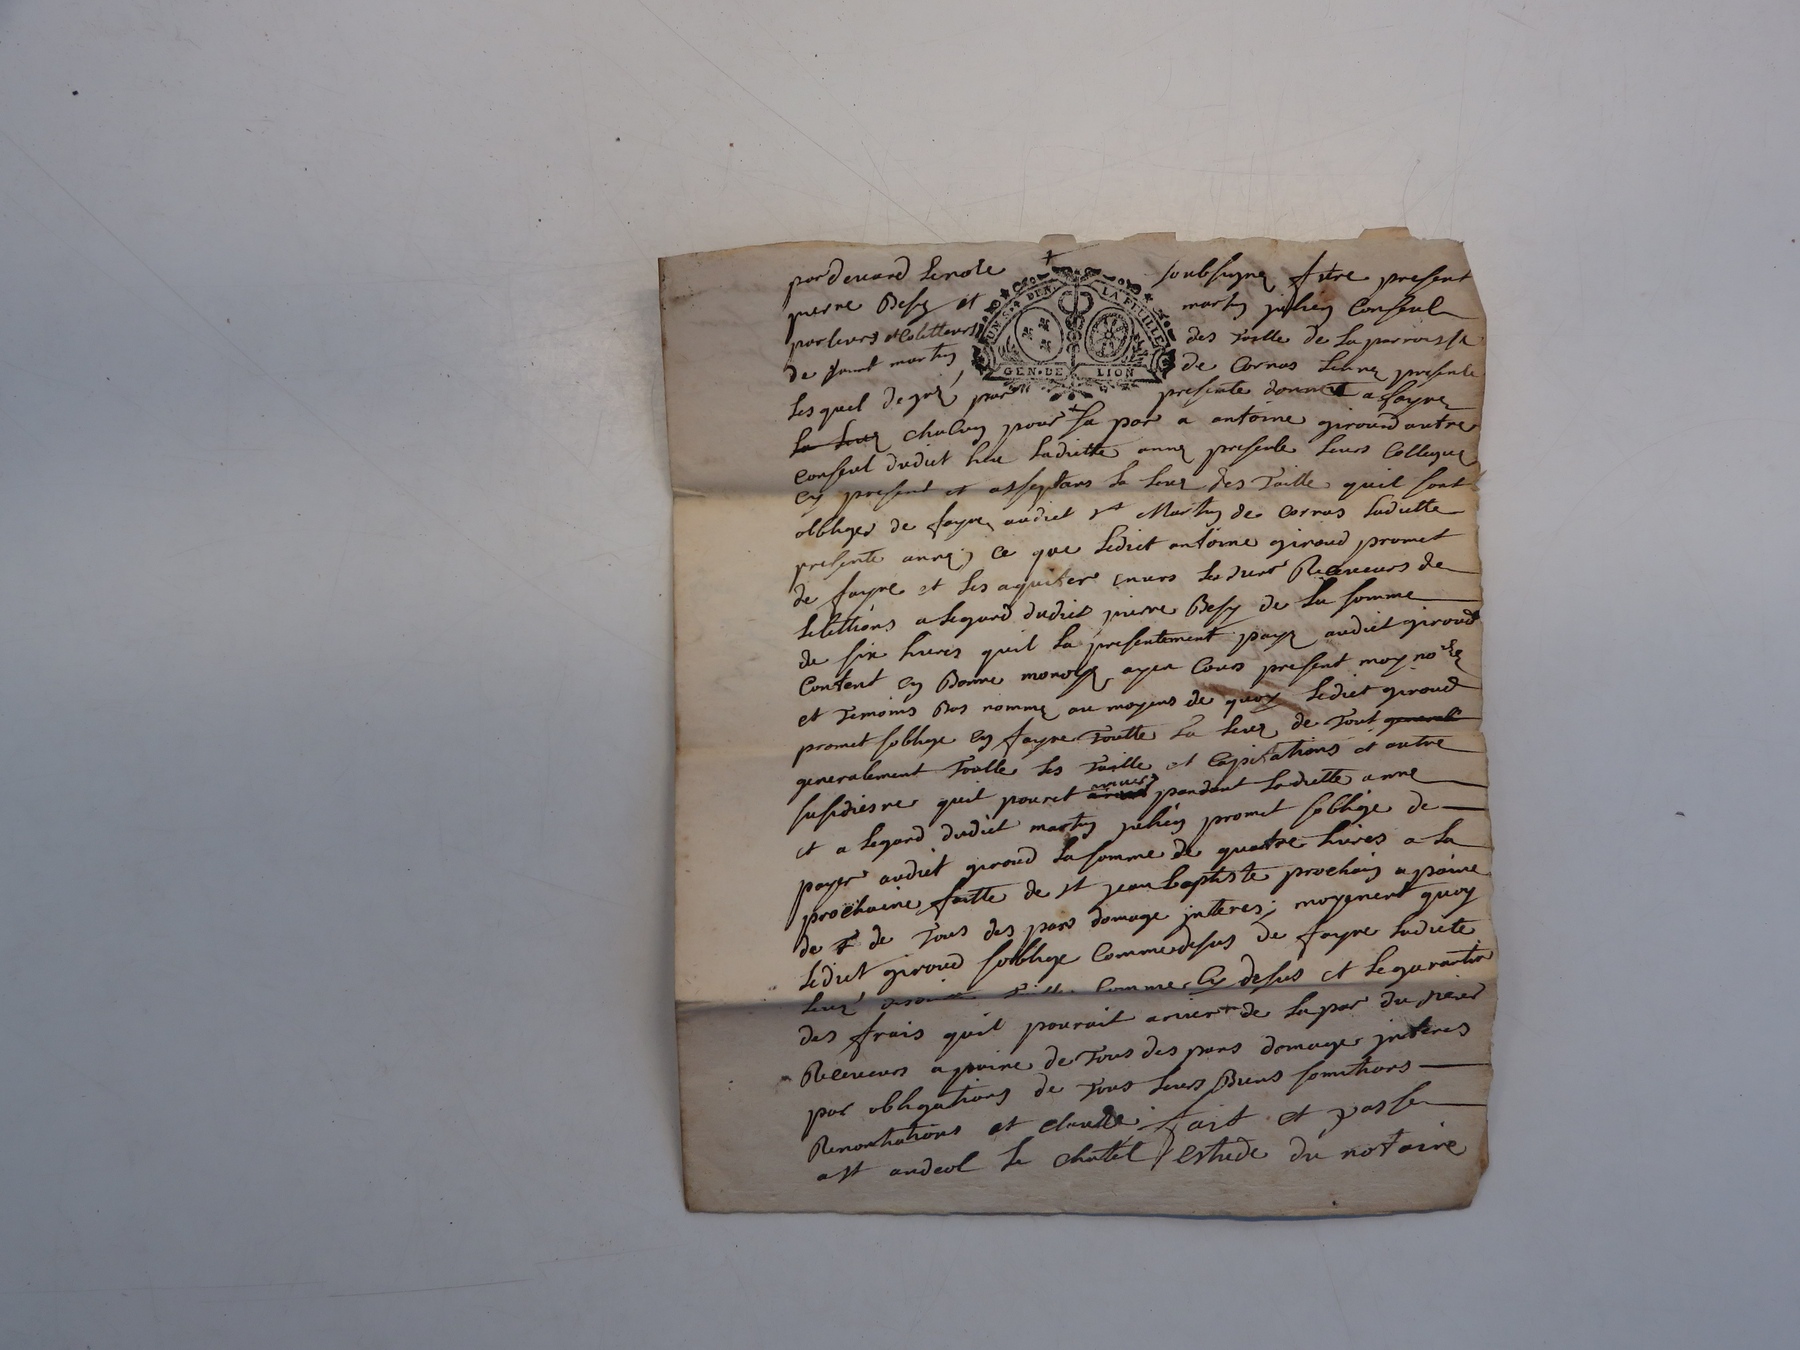 par devand le note soubsigne fure present
pierre Besy et martin julien Conseul
porteurs et Coletteurs des taille de la parroisse
de saint martin de Cornas lanne presente
UN S.º DEN. LA FEUILLE
GEN. DE LION
Lesquel de gre par presente donnet a fayre
la leve chacun pour sa par a antoine giroud autre
conseul dudict lieu laditte anne presente leurs Collegue
en present et asseptans la leve des taille quil sont
obblges de fayre audict st Martin de Cornas laditte
presente anne, ce que ledict antoine giroud promet
de fayre et les aquiter envers les Receveurs de
Lelettions a legard dudict pierre Besy de la somme
de six livres quil la presentement paye audict giroud
Content en Bonne monoye ayen Cours present moy no.re
et temoins Bas nomme au moyens de quoy ledict giroud
promet soblige en fayre toutte la leve de tout general
generalement toutte les taille et Capitations et autre
susidiesre quil pouret arriver pandant laditte anne
et a legard dudict martin julien promet soblige de
payer audict giroud la somme de quattre livres a la
prochaine faitte de st jean baptiste prochain a paine
de de tous des pans domage jnteres; moyenent quoy
Ledict giroud soblige Comme desus de fayre ladicte
Leve taille Comme Cy desus et le garantir
des frais quil pourait ariver de la par du
Receveurs a paine de tous des pans domage jnteres
par obligations de tous leurs Biens somitions
Renontiations et clause fait et passe
a st andeol le chatel estude du notaire